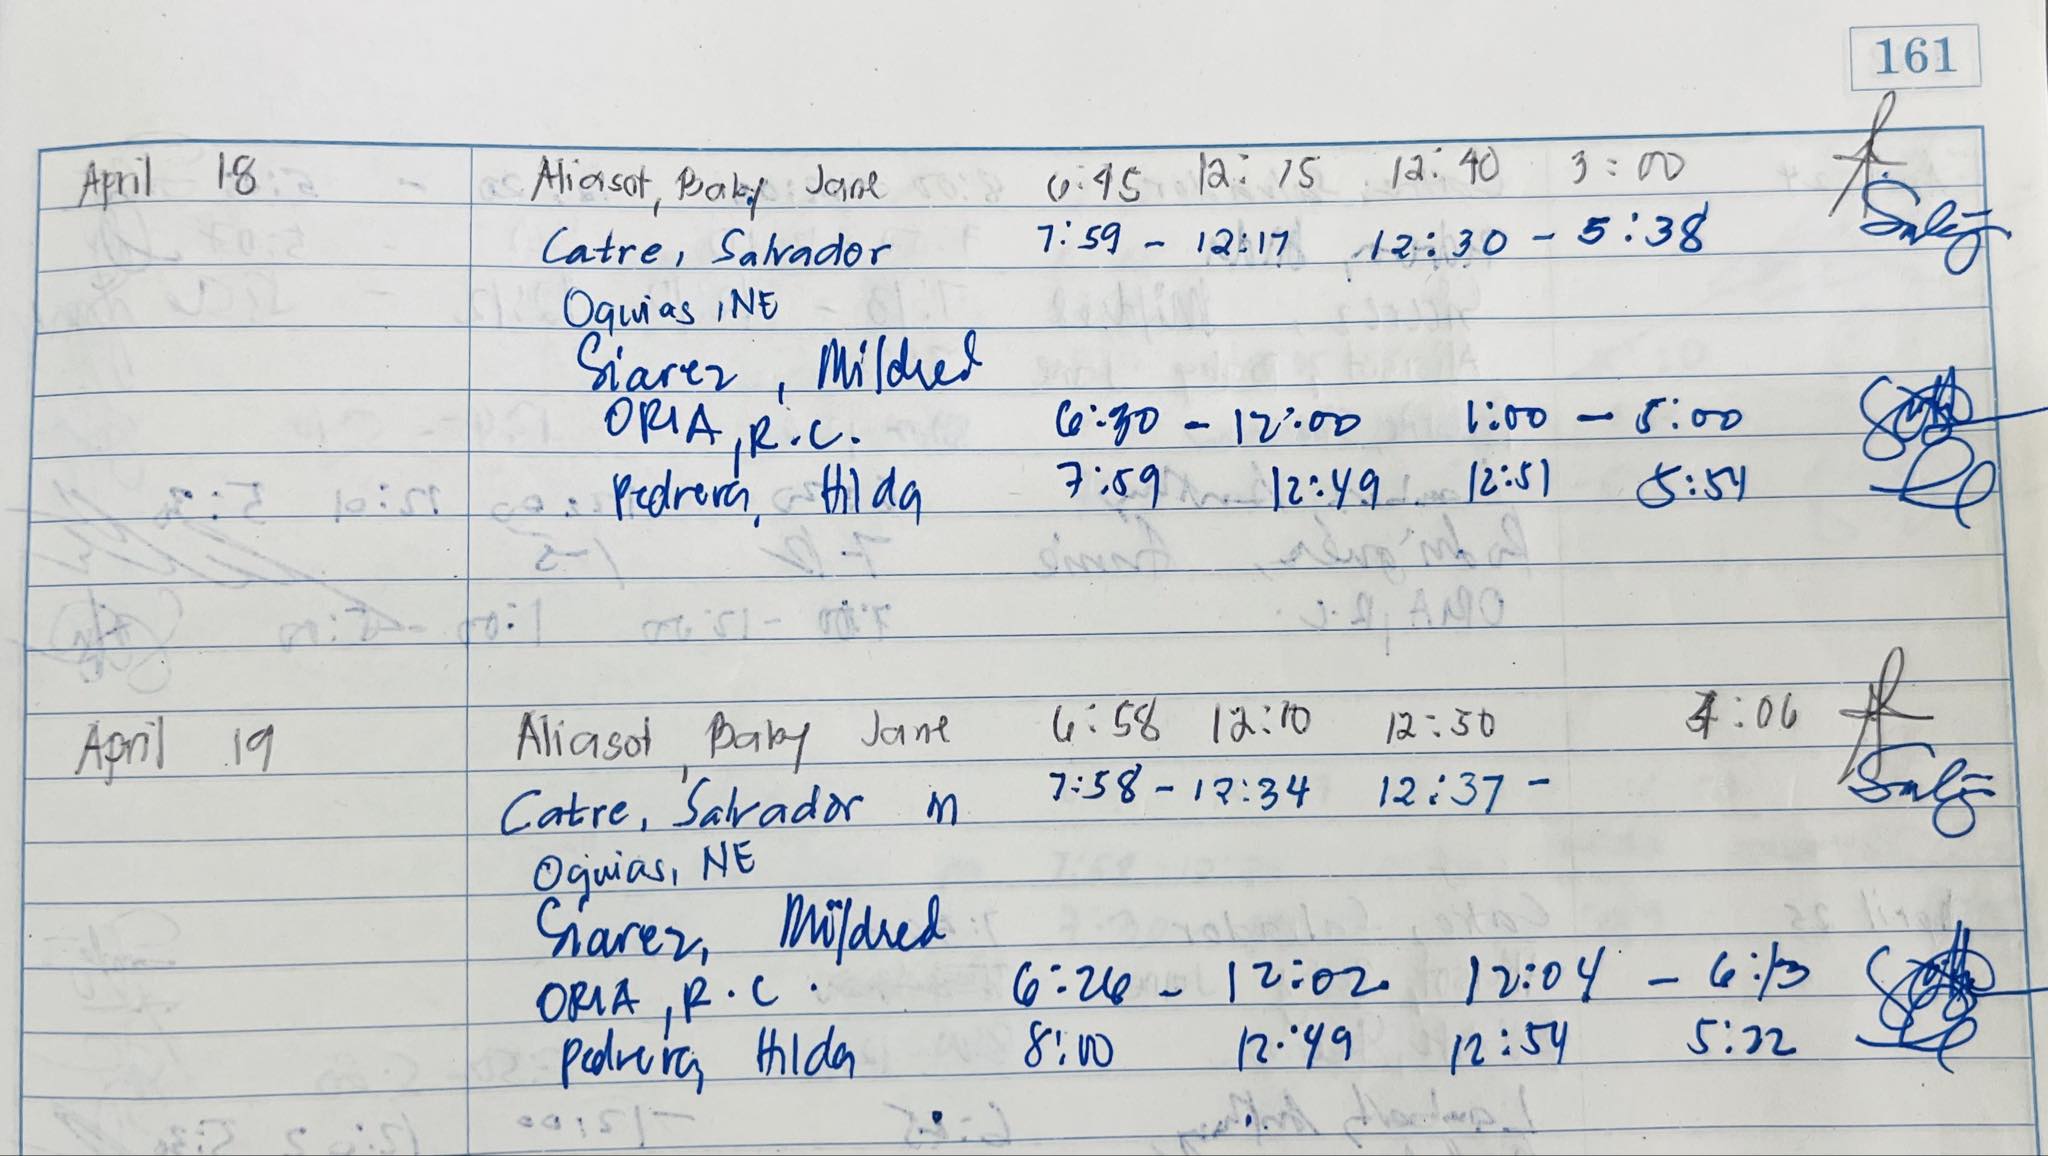 161
April 18 Aliasot, Baby Jane 6:45 12:15 12:40 3:00
Catre, Salvador 7:59 - 12:17 12:30 - 5:38
Oquias, NE
Siarez, Mildred
ORIA, R.C. 6:30 - 12:00 1:00 - 5:00
Pedrera, Hilda 7:59 12:49 12:51 5:54
April 19 Aliasot, Baby Jane 6:58 12:10 12:50 4:06
Catre, Salvador M 7:58 - 12:34 12:37 -
Oquias, NE
Siarez, Mildred
ORIA, R.C. 6:26 - 12:02 12:04 - 6:13
Pedrera, Hilda 8:00 12:49 12:54 5:22